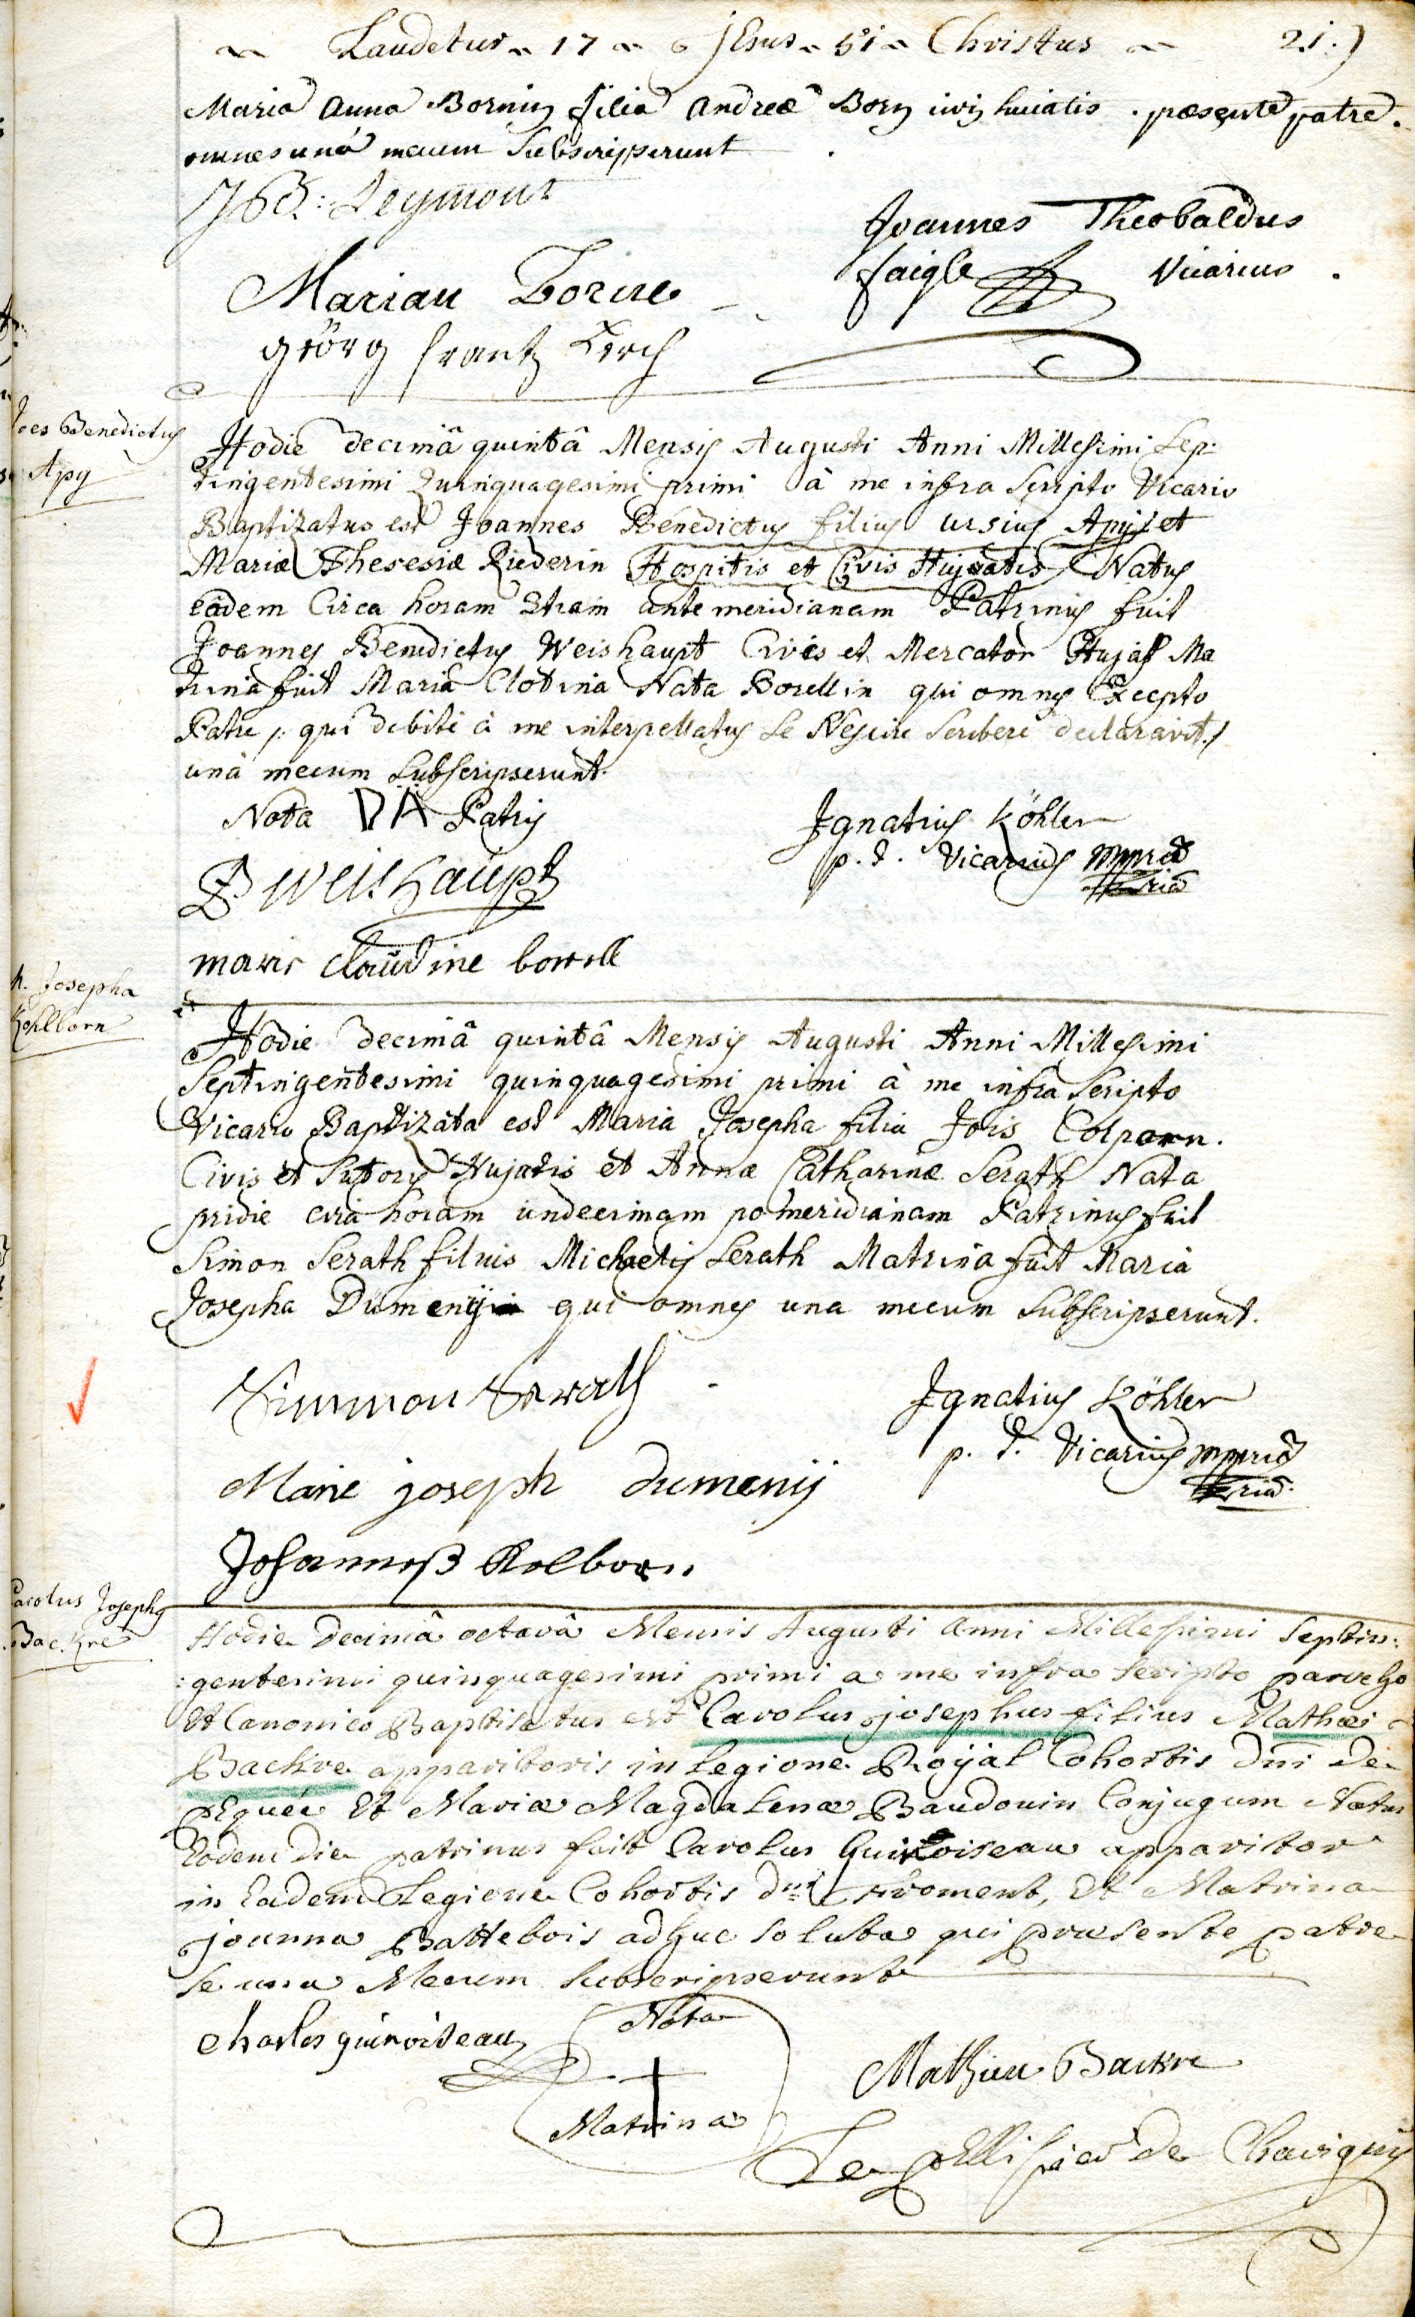 Laudetur 17 Jesus 51 Christus 21.)
Maria Anna Bornin filia Andreæ Born civis huiatis . præsente patre .
omnes unà mecum Subscripserunt
Joannes Theobaldus
Marian Borne
faigle Vicarius .
görg frantz
Joes Benedictus
Apy
Hodie decimâ quintâ Mensis Augusti Anni Millesimi Sep:
tingentesimi Quinquagesimi primi à me infra Scripto Vicario
Baptizatus est Joannes Benedictus filius Ursius Apij et
Mariæ Theresiæ Riederin Hospitis et Civis Hujatis Natus
eâdem Circa horam 2tiam ante meridianam Patrinus fuit
Joannes Benedictus Weishaupt Civis et Mercator Hujas Ma
trina fuit Maria Clotina Nata Borellin qui omnes Excepto
Patre /: qui debitè à me interpellatus Se Nescire Scribere declaravit :/
unà mecum Subscripserunt.
Nota Patris
Ignatius Köhler
p. t. Vicarius mppria
Weishaupt
maris Claudine borell
M. Josepha
Kohlborn
Hodie decimâ quintâ Mensis Augusti Anni Millesimi
Septingentesimi quinquagesimi primi à me infra Scripto
Vicario Baptizata est Maria Josepha filia Jois Colporn.
Civis et Sutoris Hujatis et Annæ Catharinæ Serath Nata
pridie circa horam undecimam pomeridianam Patrinus fuit
Simon Serath filius Michaelis Serath Matrina fuit Maria
Josepha Dumenij qui omnes una mecum Subscripserunt.
Simmon Serath
Ignatius Köhler
p. t. Vicarius mppria
Marie joseph dumenij
Johanneß Kolborn
Carolus Josephus
Backre
Hodie Decimâ octavâ Mensis Augusti Anni Millesimi Septin:
:gentesimi quinquagesimi primi a me infra Scripto parocho
Et Canonico Baptisatus est Carolus josephus filius Mathæi
Backre apparitoris in Legione Royal Cohortis Dni De
pequée Et Mariæ Magdalenæ Baudouin Conjugum Natus
Eodem die patrinus fuit Carolus Guinoiseau apparitor
in Eadem Legione Cohortis dni froment, Et Matrina
joanna Battebois adhuc Soluta qui præsente patre
Se una Mecum Subscripserunt
Charles guinoiseau
Nota
Matrina
Mathieu Backre
Le pellissier de Chavigny